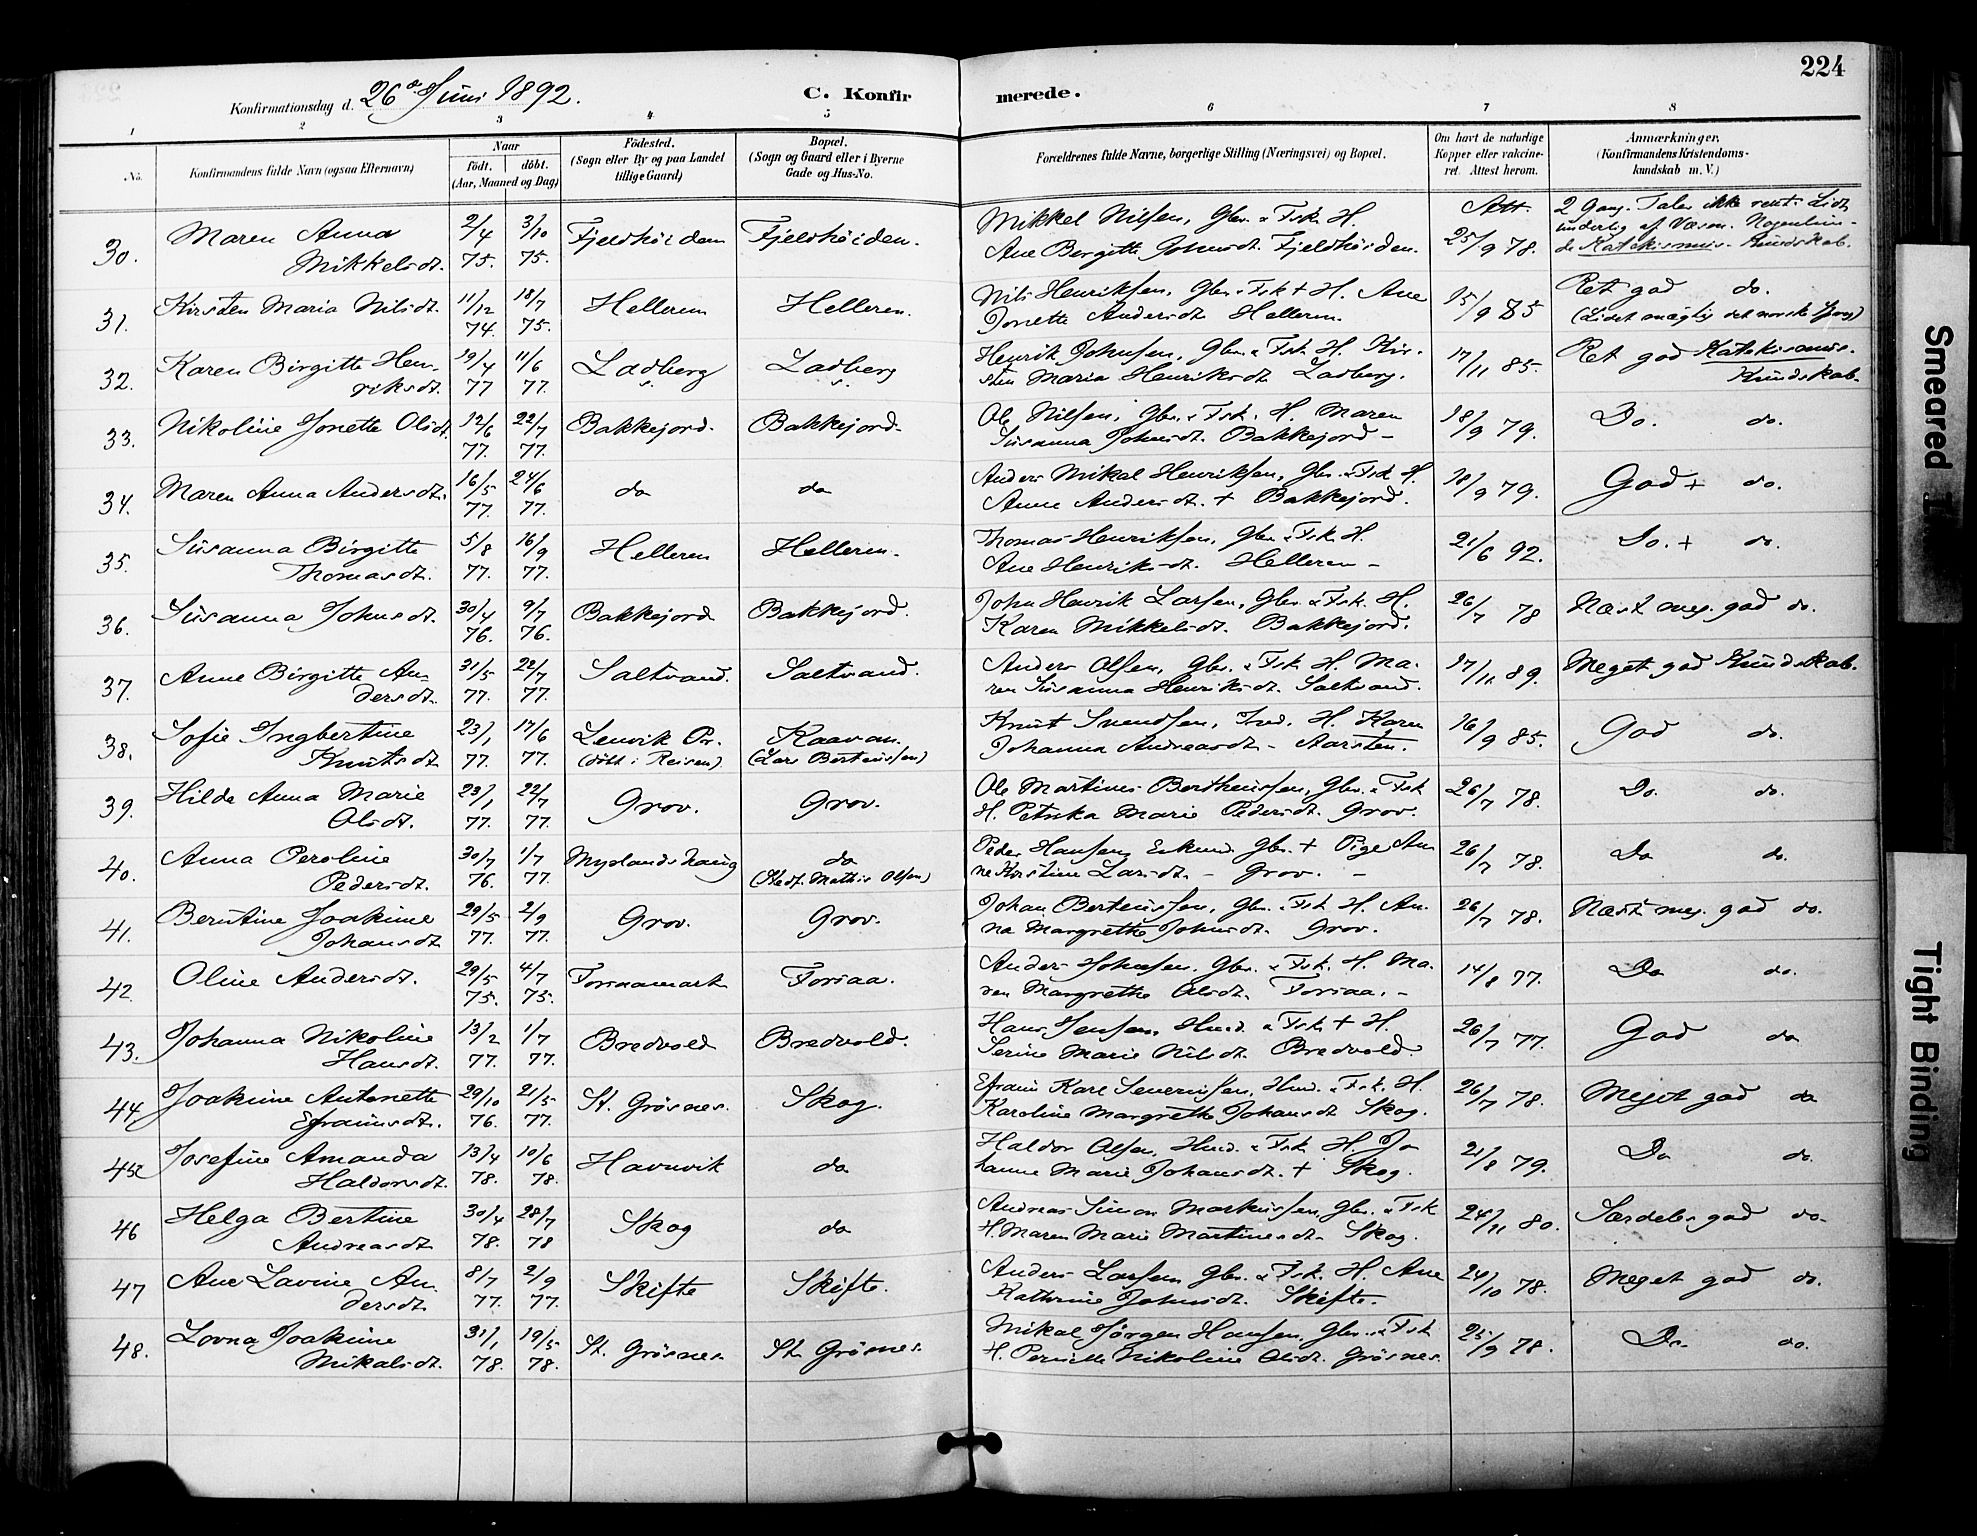 224
Konfirmationsdag d. 26de Juni 1892. C. Konfirmerede.
1 2 3 4 5 6 7 8
No. Konfirmandens fulde Navn (ogsaa Efternavn) Naar Födt. döbt. (Aar, Maaned og Dag) Födested. (Sogn eller By og paa Landet tillige Gaard) Bopæl. (Sogn og Gaard eller i Byerne Gade og Hus-No. Forældrenes fulde Navne, borgerlige Stilling (Næringsvei) og Bopæl. Om havt de naturlige Kopper eller vakcineret. Attest herom. Anmærkninger, (Konfirmandens Kristendomskundskab m. V.)
30. Maren Anna 2/4 3/10 Fjeldhöiden Fjeldhöiden. Mikkel Nilsen, Gbr. & Fsk. H. Att. 2 Gang. Taler ikke rent. Lidt
underlig af Væsen. Nogenlun-
Mikkelsdt. 75. 75. Ane Bergitte Johnsdt. Fjeldhöiden. 25/9 78. de Katekismus-Kundskab.
31. Kirsten Maria Nilsdt. 11/12 18/7 Helleren Helleren. Nils Henriksen, Gbr. & Fsk. + H. Ane 15/9 85 Ret god do.
74. 75. Jonette Andersdt. Helleren. (Lidet mægtig det norske Sprog)
32. Karen Birgitte Hen- 19/4 11/6 Ladberg Ladberg Henrik Johnsen, Gbr. & Fsk. H. Kir- 17/11 85. Ret god Katekismus-
riksdt. 77 77. sten Maria Henriksdt. Ladberg. Kundskab.
33. Nikoline Jonette Olsdt. 12/6 22/7 Bakkejord. Bakkejord. Ole Nilsen, Gbr. & Fsk. H. Maren 18/9 79. Do. do.
77. 77. Susanna Johnsdt. Bakkejord -
34. Maren Anna Andersdt. 16/5 24/6 do do Anders Mikal Henriksen, Gbr. & Fsk. H. 18/9 79. God + do.
77. 77. Anne Andersdt. + Bakkejord.
35. Susanna Birgitte 5/8 16/9 Helleren Helleren. Thomas Henriksen, Gbr. & Fsk. H. 21/6 92. Do. + do.
Thomasdt. 77. 77. Ane Henriksdt. Helleren -
36. Susanna Johnsdt. 30/4 9/7 Bakkejord Bakkejord. John Henrik Larsen, Gbr. & Fsk. H. 26/7 78 Næst meg. god do.
76. 76. Karen Mikkelsdt. Bakkejord.
37. Anne Birgitte An- 31/5 22/7 Saltvand. Saltvand. Anders Olsen, Gbr. & Fsk. H. Ma- 17/11 89. Meget god Kundskab.
dersdt. 77. 77. ren Susanna Henriksdt. Saltvand.
38. Sofie Ingbertine 23/1 17/6 Lenvik Pr. Kaavan. Knut Svendsen, Ind. H. Karen 16/9 85. God do.
Knutsdt 77. 77. (döbt i Reisen) (Lars Berteussen) Johanna Andreasdt. - Aarsten.
39. Hilda Anna Marie 23/1 22/7 Grov. Grov. Ole Martinus Bertheussen, Gbr. & Fsk 26/7 78. Do. do.
Olsdt. 77. 77. H. Petrika Marie Pedersdt. Grov.
40. Anna Peroline 30/7 1/7 Myrlandshaug do Peder Hansen, Enkemd. Gbr. + Pige An 26/7 78. Do do.
Pedersdt. 76. 77. (Stedf. Mathis Olsen) ne Kirstine Larsdt. - Grov. -
41. Berntine Joakime 29/5 2/9 Grov. Grov. Johan Berteussen, Gbr. & Fsk. H. An- 26/7 78. Næst meg. god do.
Johansdt 77. 77. na Margrethe Johnsdt. Grov.
42. Oline Andersdt. 29/5 4/7 Forsaamark Forsaa. Anders Johnsen, Gbr. & Fsk. H. Ma- 14/8 77. Do do.
75. 75. ren Margrethe Olsdt. Forsaa. -
43. Johanna Nikoline 13/2 1/7 Bredvold Bredvold. Hans Jensen, Hmd. & Fsk + H. 26/7 77. God do
Hansdt. 77. 77. Serine Marie Nilsdt. Bredvold.
44. Joakime Antonette 29/10 21/5 St. Grösnes. Skog. Efraim Karl Severinsen, Hmd. & Fsk. H. 26/7 78. Meget god do
Efraimsdt. 76. 77. Karoline Margrethe Johansdt Skog.
45. Josefine Amanda 13/4 10/6 Havnvik do Haldor Olsen, Hmd. & Fsk H. Jo 21/8 79. Do do.
Haldorsdt. 78. 78. hanne Marie Johansdt. + Skog.
46 Helga Bertine 30/4 28/7 Skog do Andreas Simon Markussen, Gbr. & Fsk 24/11 80. Særdeles god do.
Andreasdt 78. 78 H. Maren Marie Martinesdt. Skog.
47 Ane Lavine An- 8/7 2/9 Skifte Skifte. Anders Larsen Gbr. & Fsk. H. Ane 24/10 78. Meget god do.
dersdt. 77. 77. Kathrine Johnsdt. Skifte.
48. Lovna Joakime 31/1 19/5 St. Grösnes. St. Grösnes. Mikal Jörgen Hansen, Gbr. & Fsk 25/9 78. Do. do.
Mikalsdt. 78. 78. H. Pernille Nikoline Olsdt. Grösnes.
Smeared
Tight Binding